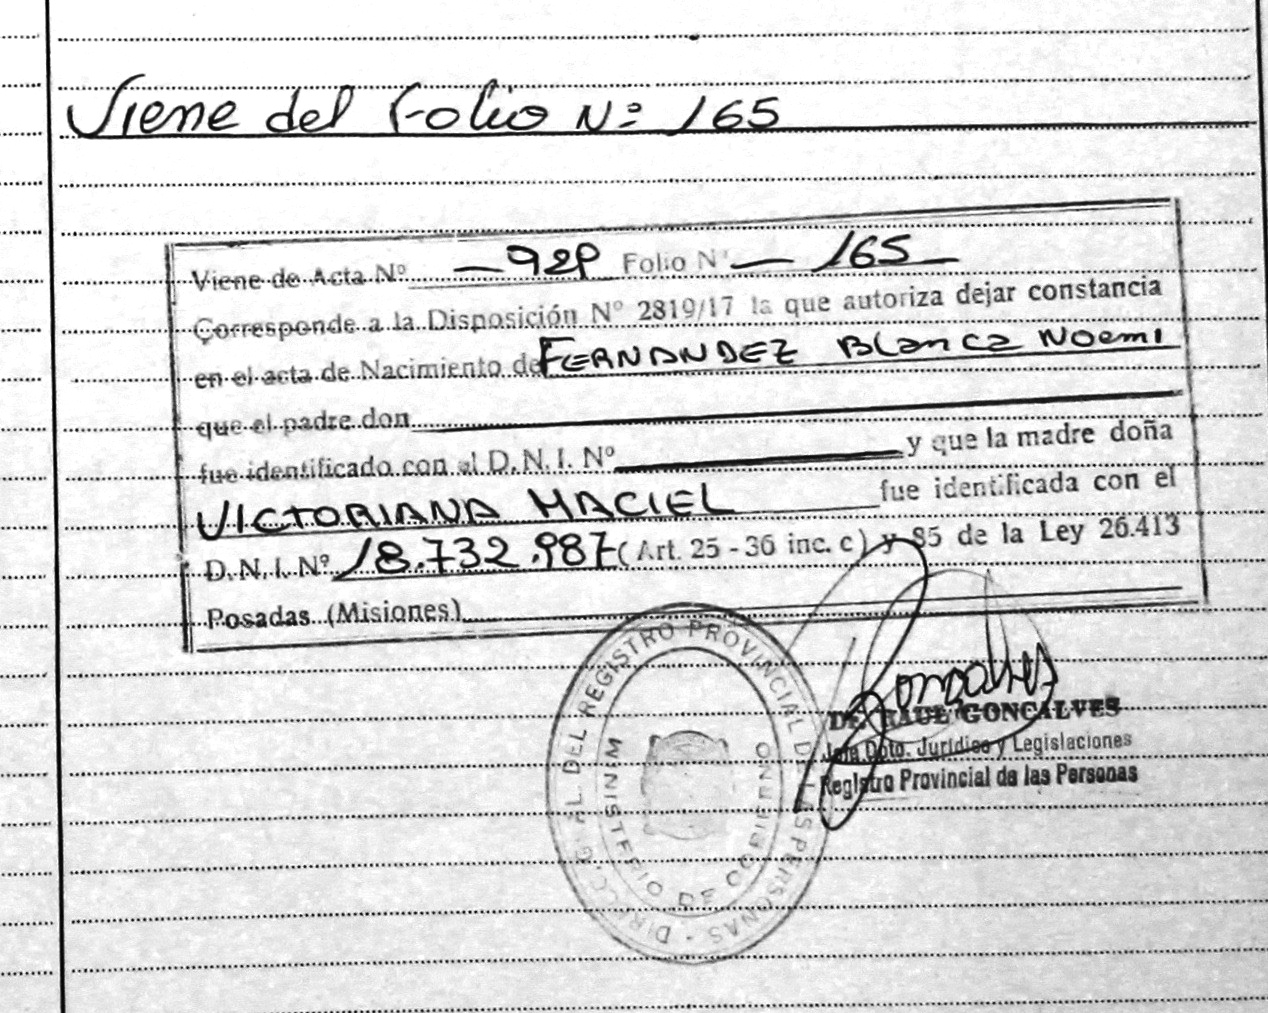 Viene del Folio Nº 165
Viene de Acta Nº — 92P Folio Nº — 165 —
Corresponde a la Disposición Nº 2819/17 la que autoriza dejar constancia
en el acta de Nacimiento de FERNANDEZ Blanca Noemi
que el padre don
fue identificado con el D.N.I. Nº y que la madre doña
VICTORIANA MACIEL fue identificada con el
D.N.I. Nº 18.732.987 (Art. 25 - 36 inc. c) y 85 de la Ley 26.413
Posadas (Misiones)
DIRECC. GRAL. DEL REGISTRO PROVINCIAL DE LAS PERSONAS -
MINISTERIO DE GOBIERNO
Goncalves
RAUL GONCALVES
Jefe Dpto. Jurídico y Legislaciones
Registro Provincial de las Personas